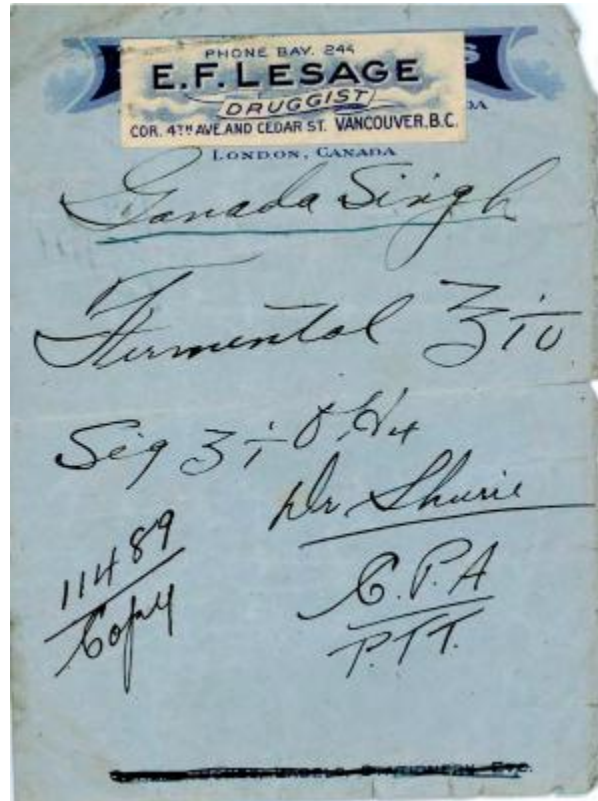 PHONE BAY. 244
E.F. LESAGE
DRUGGIST
COR. 4TH AVE AND CEDAR ST. VANCOUVER, B.C.
LONDON, CANADA
Ganada Singh
Fermental ℥ iv
Sig ʒ i
Dr Shurie
11489
Copy
C.P.A
P.T.T.